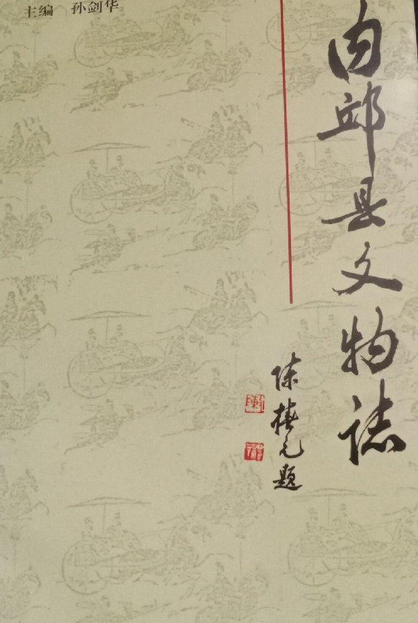 主编 孙剑华
内邱县文物誌
陈椿元题